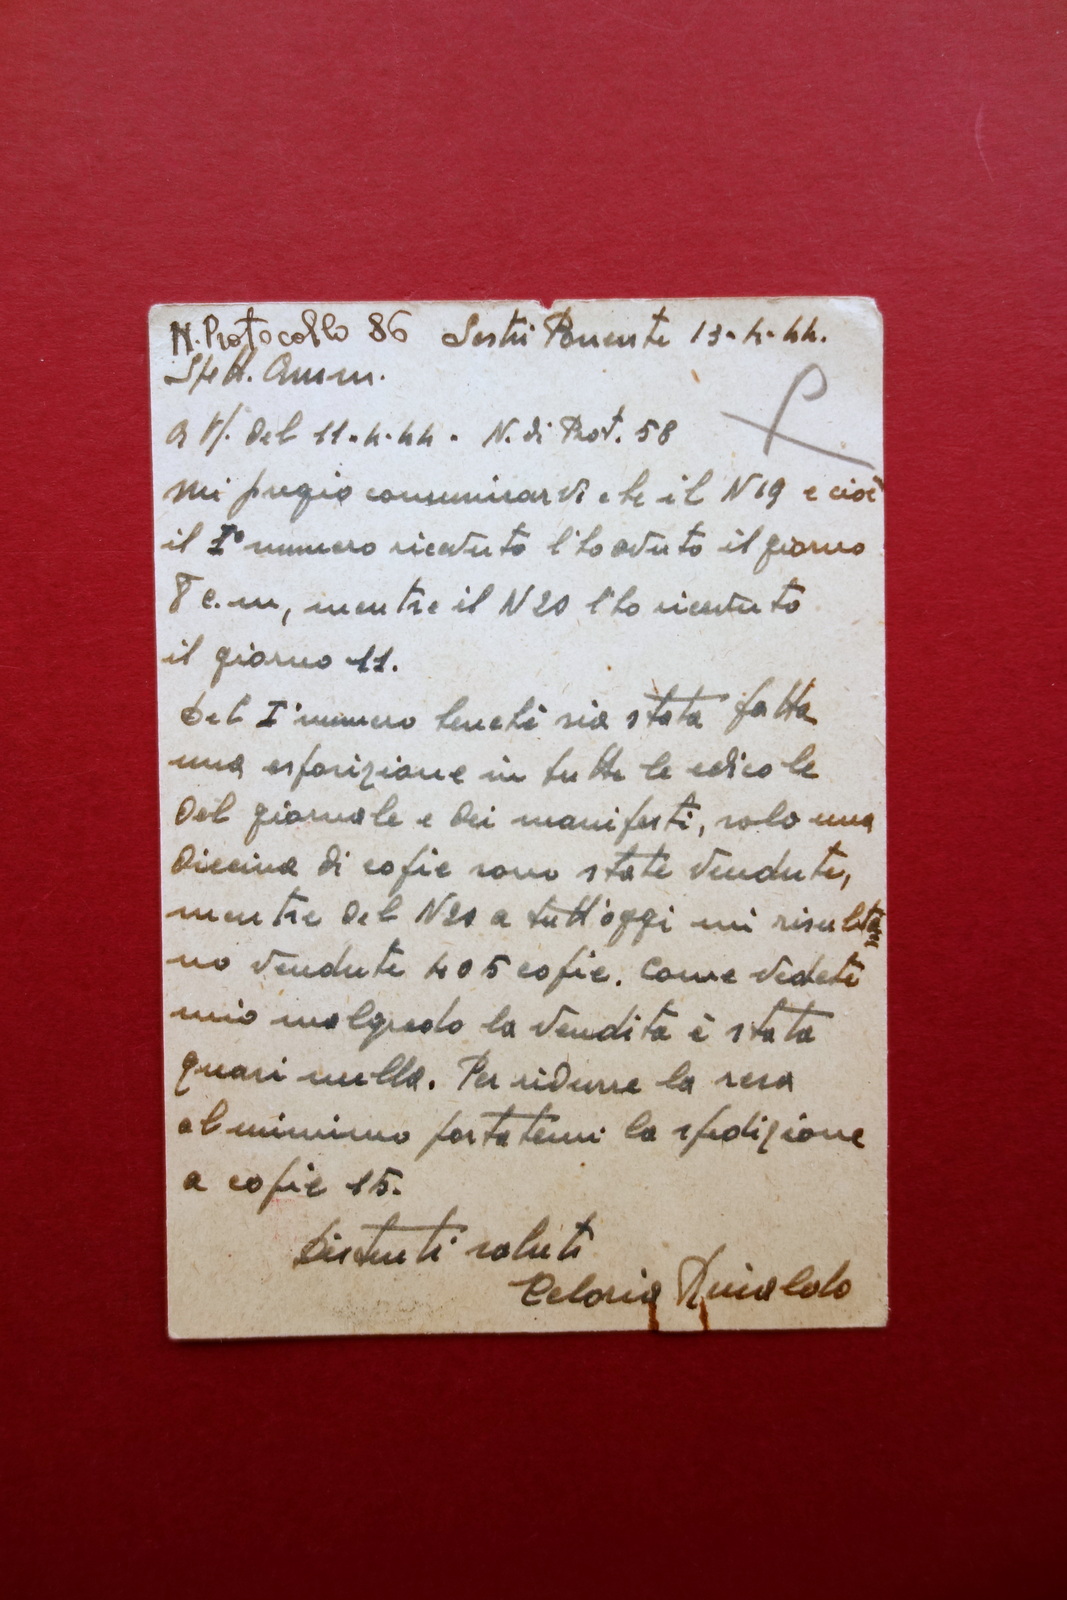 N. Protocollo 86 Sestri Ponente 13-4-44.
Spett. Amm.
a V/. del 11-4-44 - N. di Prot. 58
Mi pregio comunicarvi che il N 19 e cioè
il I° numero ricevuto l'ho avuto il giorno
8 c.m, mentre il N 20 l'ho ricevuto
il giorno 11.
Del I° numero benchè sia stata fatta
una esposizione in tutte le edicole
del giornale e dei manifesti, solo una
diecina di copie sono state vendute,
mentre del N 20 a tutt'oggi mi risulta
no vendute 4 o 5 copie. Come vedete
mio malgrado la vendita è stata
quasi nulla. Per ridurre la resa
al minimo portatemi la spedizione
a copie 15.
Distinti saluti
Celoria Rinaldo